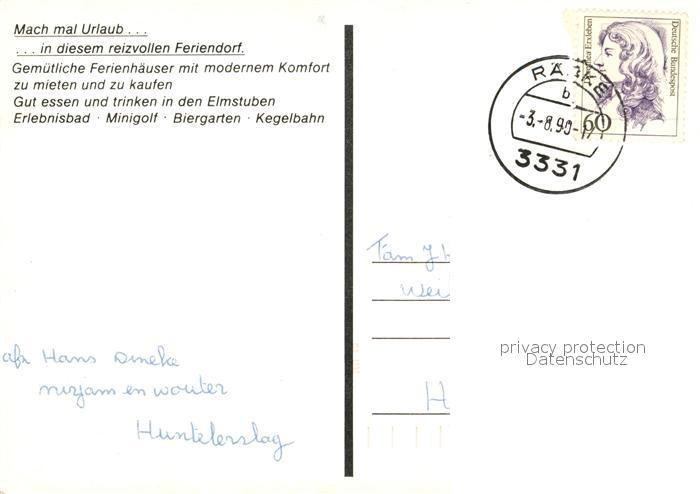 Mach mal Urlaub . . .
. . . in diesem reizvollen Feriendorf.
Gemütliche Ferienhäuser mit modernem Komfort
zu mieten und zu kaufen
Gut essen und trinken in den Elmstuben
Erlebnisbad · Minigolf · Biergarten · Kegelbahn
Deutsche Bundespost
Erxleben
60
RÄBKE
b
-3.-8.90-
3331
Fam
privacy protection
Datenschutz
afz Hans Dineke
mirjam en wouter
H
Huntelerslag